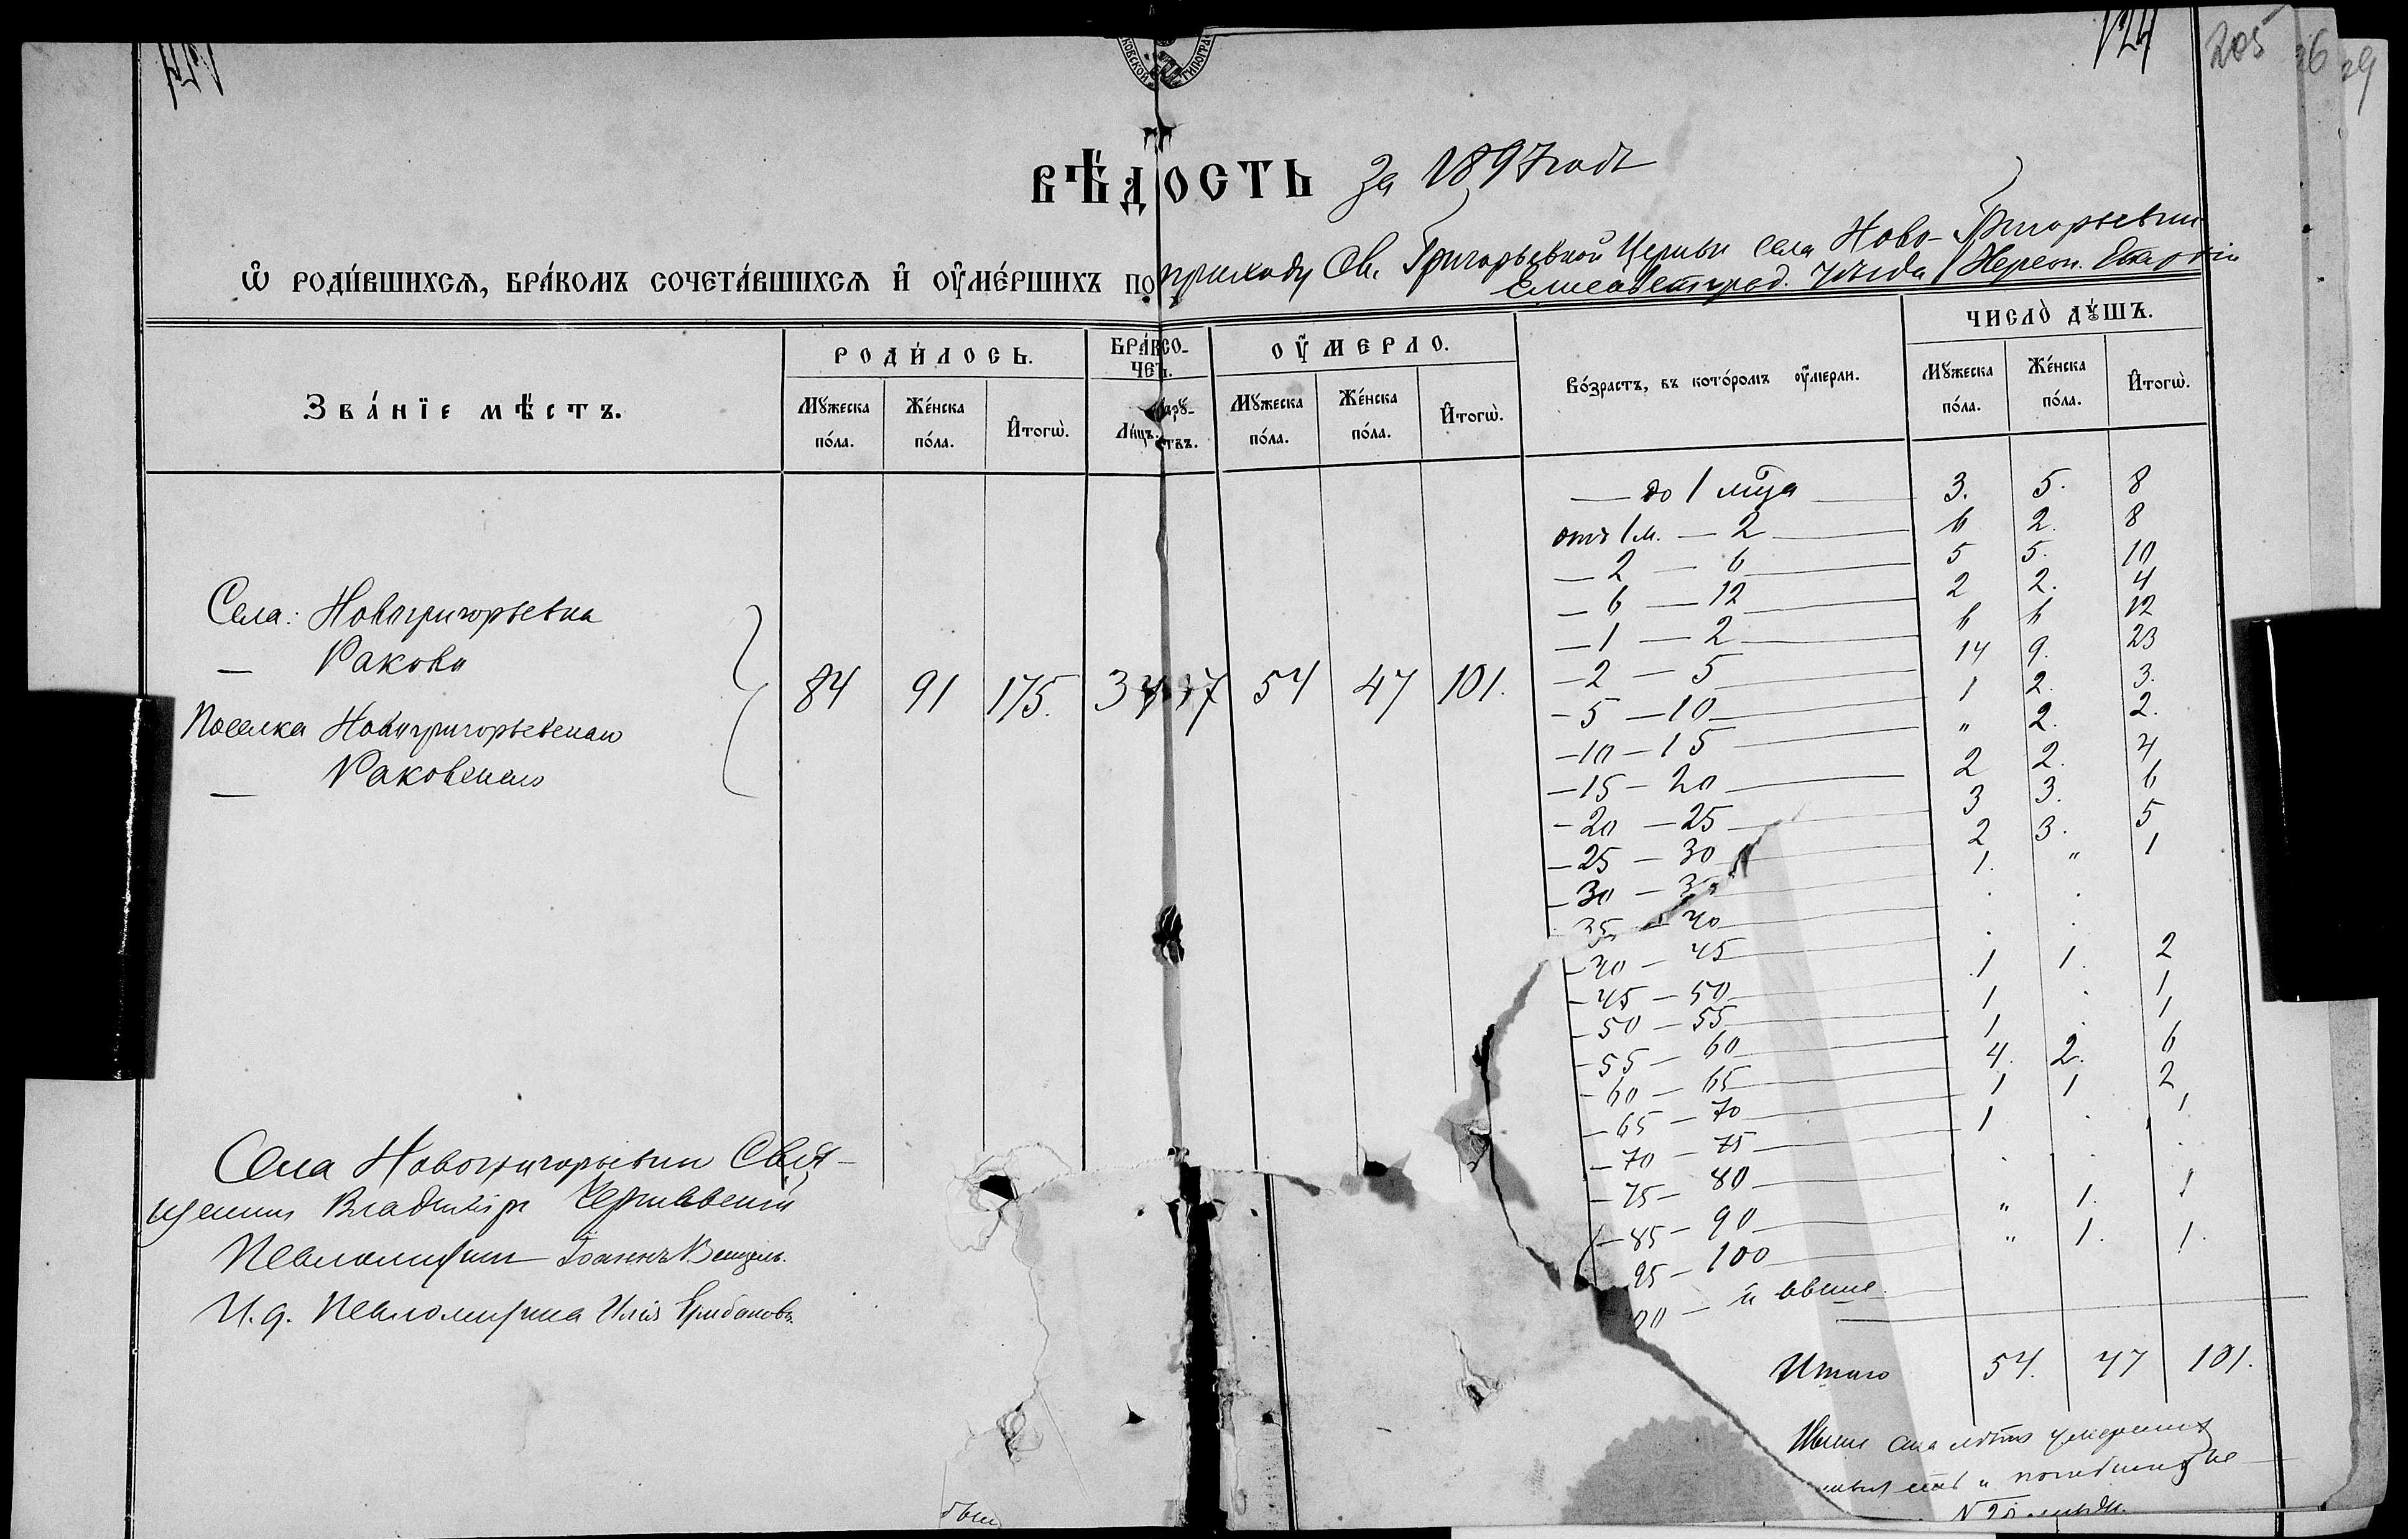 124
205
26
29
ВѢДОСТЬ за 1897 годъ
Ѡ РОДИ́ВШИХСѦ, БРА́КОМЪ СОЧЕТА́ВШИХСѦ И҆ ОУ҆МЕ́РШИХЪ ПО приходу Св. Григорьевской Церкви села Ново-Григорьевки
Елисаветград. уѣзда Херсон. Епархіи
Зва́нїе мѣ́стъ.
РОДИ́ЛОСЬ.
Мꙋжеска по́ла.
Же́нска по́ла.
И҆тогѡ̀.
БРА́К. СО-ЧЕТ.
Ли́цъ.
ОУ҆МЕРЛО.
Мꙋжеска по́ла.
Же́нска по́ла.
И҆тогѡ̀.
Во́зрастъ, въ кото́ромъ оу҆мерли.
ЧИСЛО̀ ДꙊ́ШЪ.
Мꙋжеска по́ла.
Же́нска по́ла.
И҆тогѡ̀.
Села: Новогригорьевка
— Раково
Поселка Новогригорьевскаго
— Раковскаго
84 91 175. 37 54 47 101.
— до 1 мѣца — 3. 5. 8
отъ 1 м. — 2 — 6 2. 8
— 2 — 6 — 5 5. 10
— 6 — 12 — 2 2. 4
— 1 — 2 — 6 6 12
— 2 — 5 — 14 9. 23
— 5 — 10 — 1 2. 3.
— 10 — 15 — " 2. 2.
— 15 — 20 — 2 2. 4
— 20 — 25 — 3 3. 6
— 25 — 30 — 2 3. 5
— 30 — 35 — 1. " 1
35 — 40 — . .
— 40 — 45 — . .
— 45 — 50 — 1 1. 2
— 50 — 55 — 1 . 1
— 55 — 60 — 1 . 1
— 60 — 65 — 4. 2. 6
— 65 — 70 — 1 1 2
— 70 — 75 — 1 . 1
— 75 — 80 — . . .
— 85 — 90 — " 1. 1
95 — 100 — " 1. 1.
00 — и свыше
Итого 54. 47 101.
Села Новогригорьевки Свя-
щенник Владиміръ
Псаломщик Іоаннъ
И. д. Псаломщика Илія Грибановъ
Свыше ста лѣтъ умерших